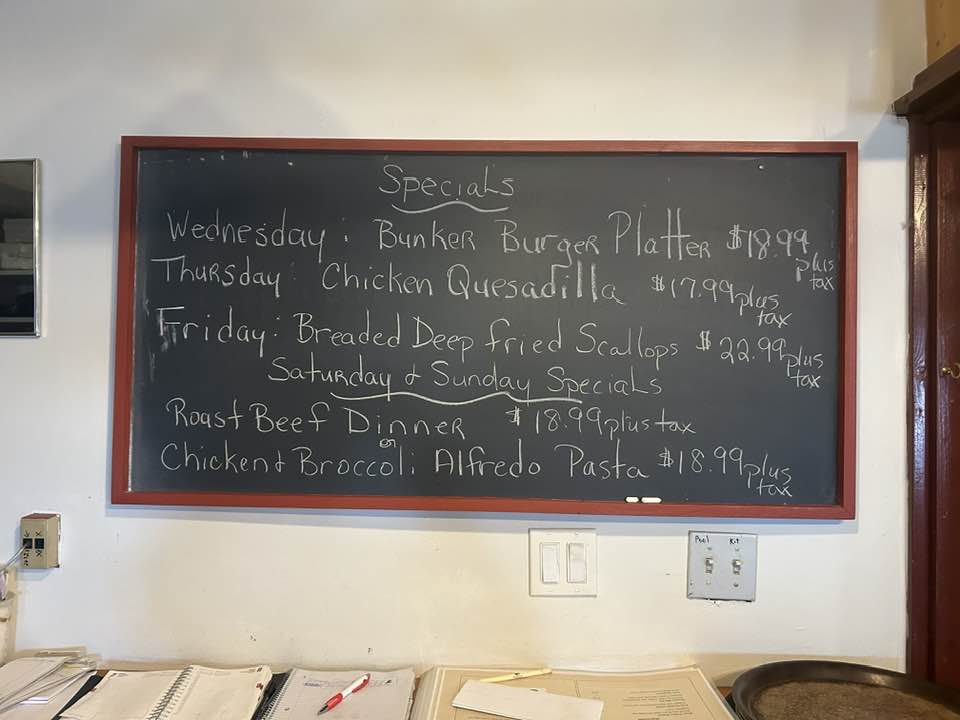 Specials
Wednesday: Bunker Burger Platter $18.99 plus tax
Thursday Chicken Quesadilla $17.99 plus tax
Friday: Breaded Deep fried Scallops $22.99 plus tax
Saturday & Sunday Specials
Roast Beef Dinner $18.99 plus tax
or
Chicken & Broccoli Alfredo Pasta $18.99 plus tax
Pool Kit